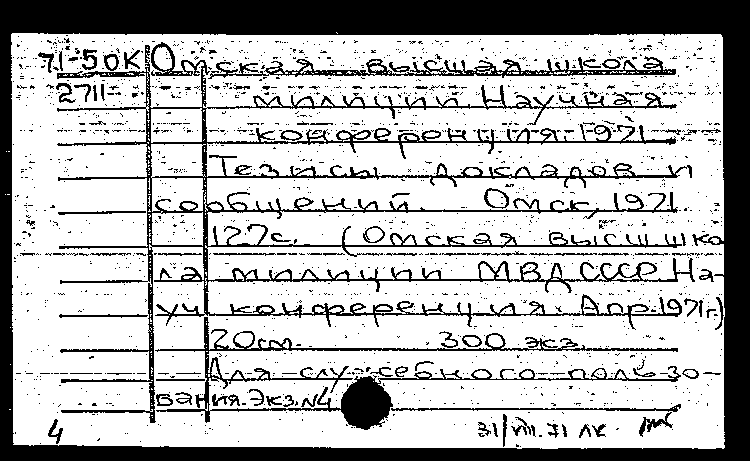 71-5 ОК Омская высшая школа
2711 милиции Научная
конференция. 1971
Тезисы докладов и
сообщений. Омск, 1971.
127с. (Омская высш шко
ла милиции МВД СССР На-
уч конференция. Апр.1971г.)
20см. 300 экз.
Для служебного пользо-
вания. Экз.N4
4 31/VII.71 ЛК.